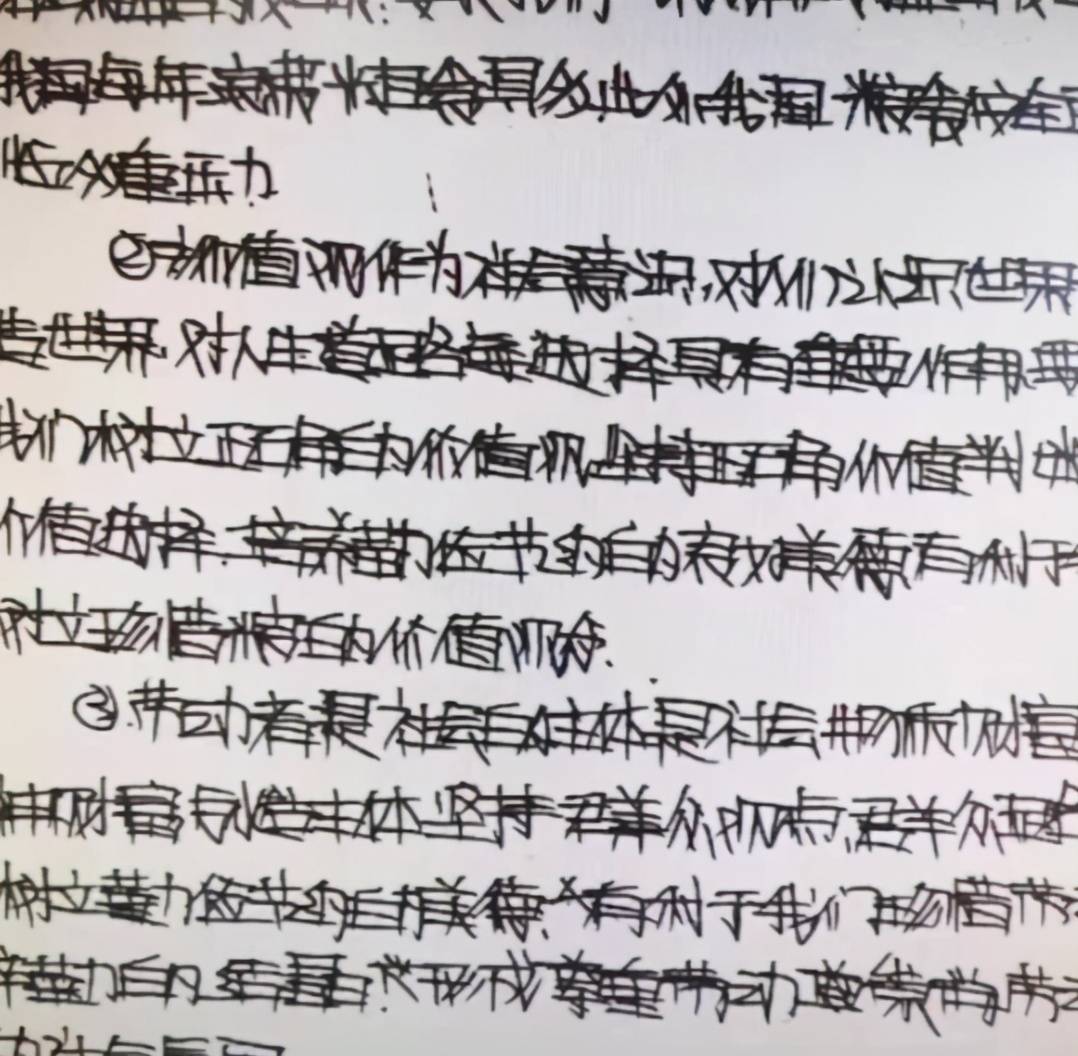 我国每年浪费粮食具多,此外我国粮食安全
临众重压力
②价值观作为社会意识,对人们认识世界
造世界,对人生道路的选择具有重要作用,要
我们树立正确的价值观,坚持正确价值判断
价值选择.培养勤俭节约的良好美德,有利于
树立珍惜粮食的价值观念.
③.劳动者是社会的主体,是社会物质财富
神财富创造主体,坚持群众观点,群众路
树立勤俭节约的美德.有利于我们珍惜劳
辛勤的结晶.形成尊重劳动,崇尚劳动